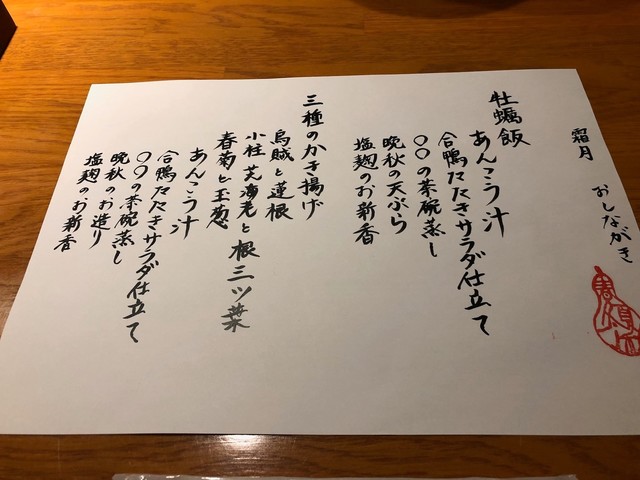 霜月　おしながき
牡蠣飯
あんこう汁
合鴨たたきサラダ仕立て
〇〇の茶碗蒸し
晩秋の天ぷら
塩麹のお新香
三種のかき揚げ
烏賊と蓮根
小柱 芝海老と根三ツ葉
春菊と玉葱
あんこう汁
合鴨たたきサラダ仕立て
〇〇の茶碗蒸し
晩秋のお造り
塩麹のお新香